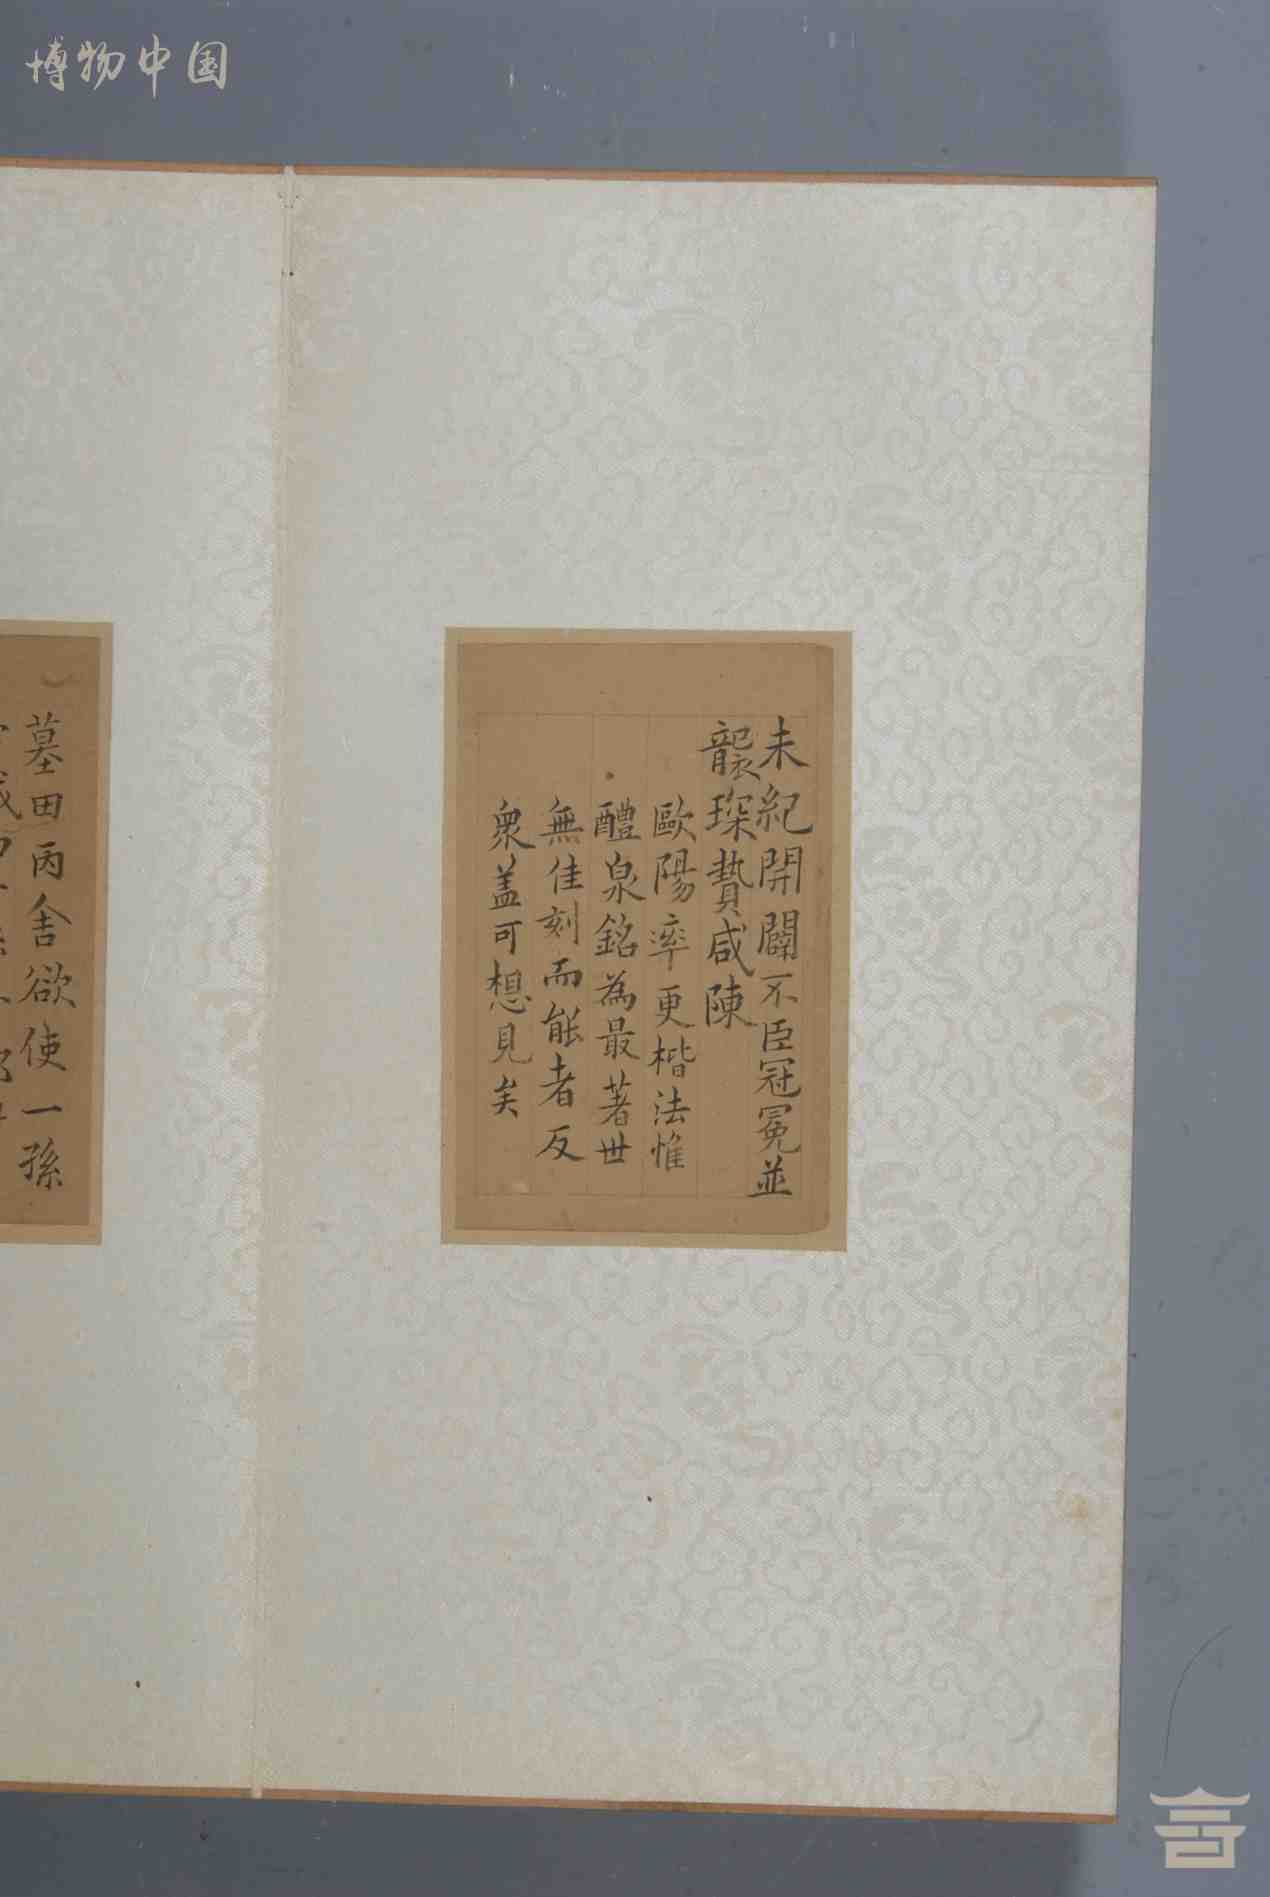 博物中国
未紀開闢不臣冠冕並
襲琛贄咸陳
歐陽率更楷法惟
醴泉銘為最著世
無佳刻而能者反
衆盖可想見矣
墓田丙舍欲使一孫